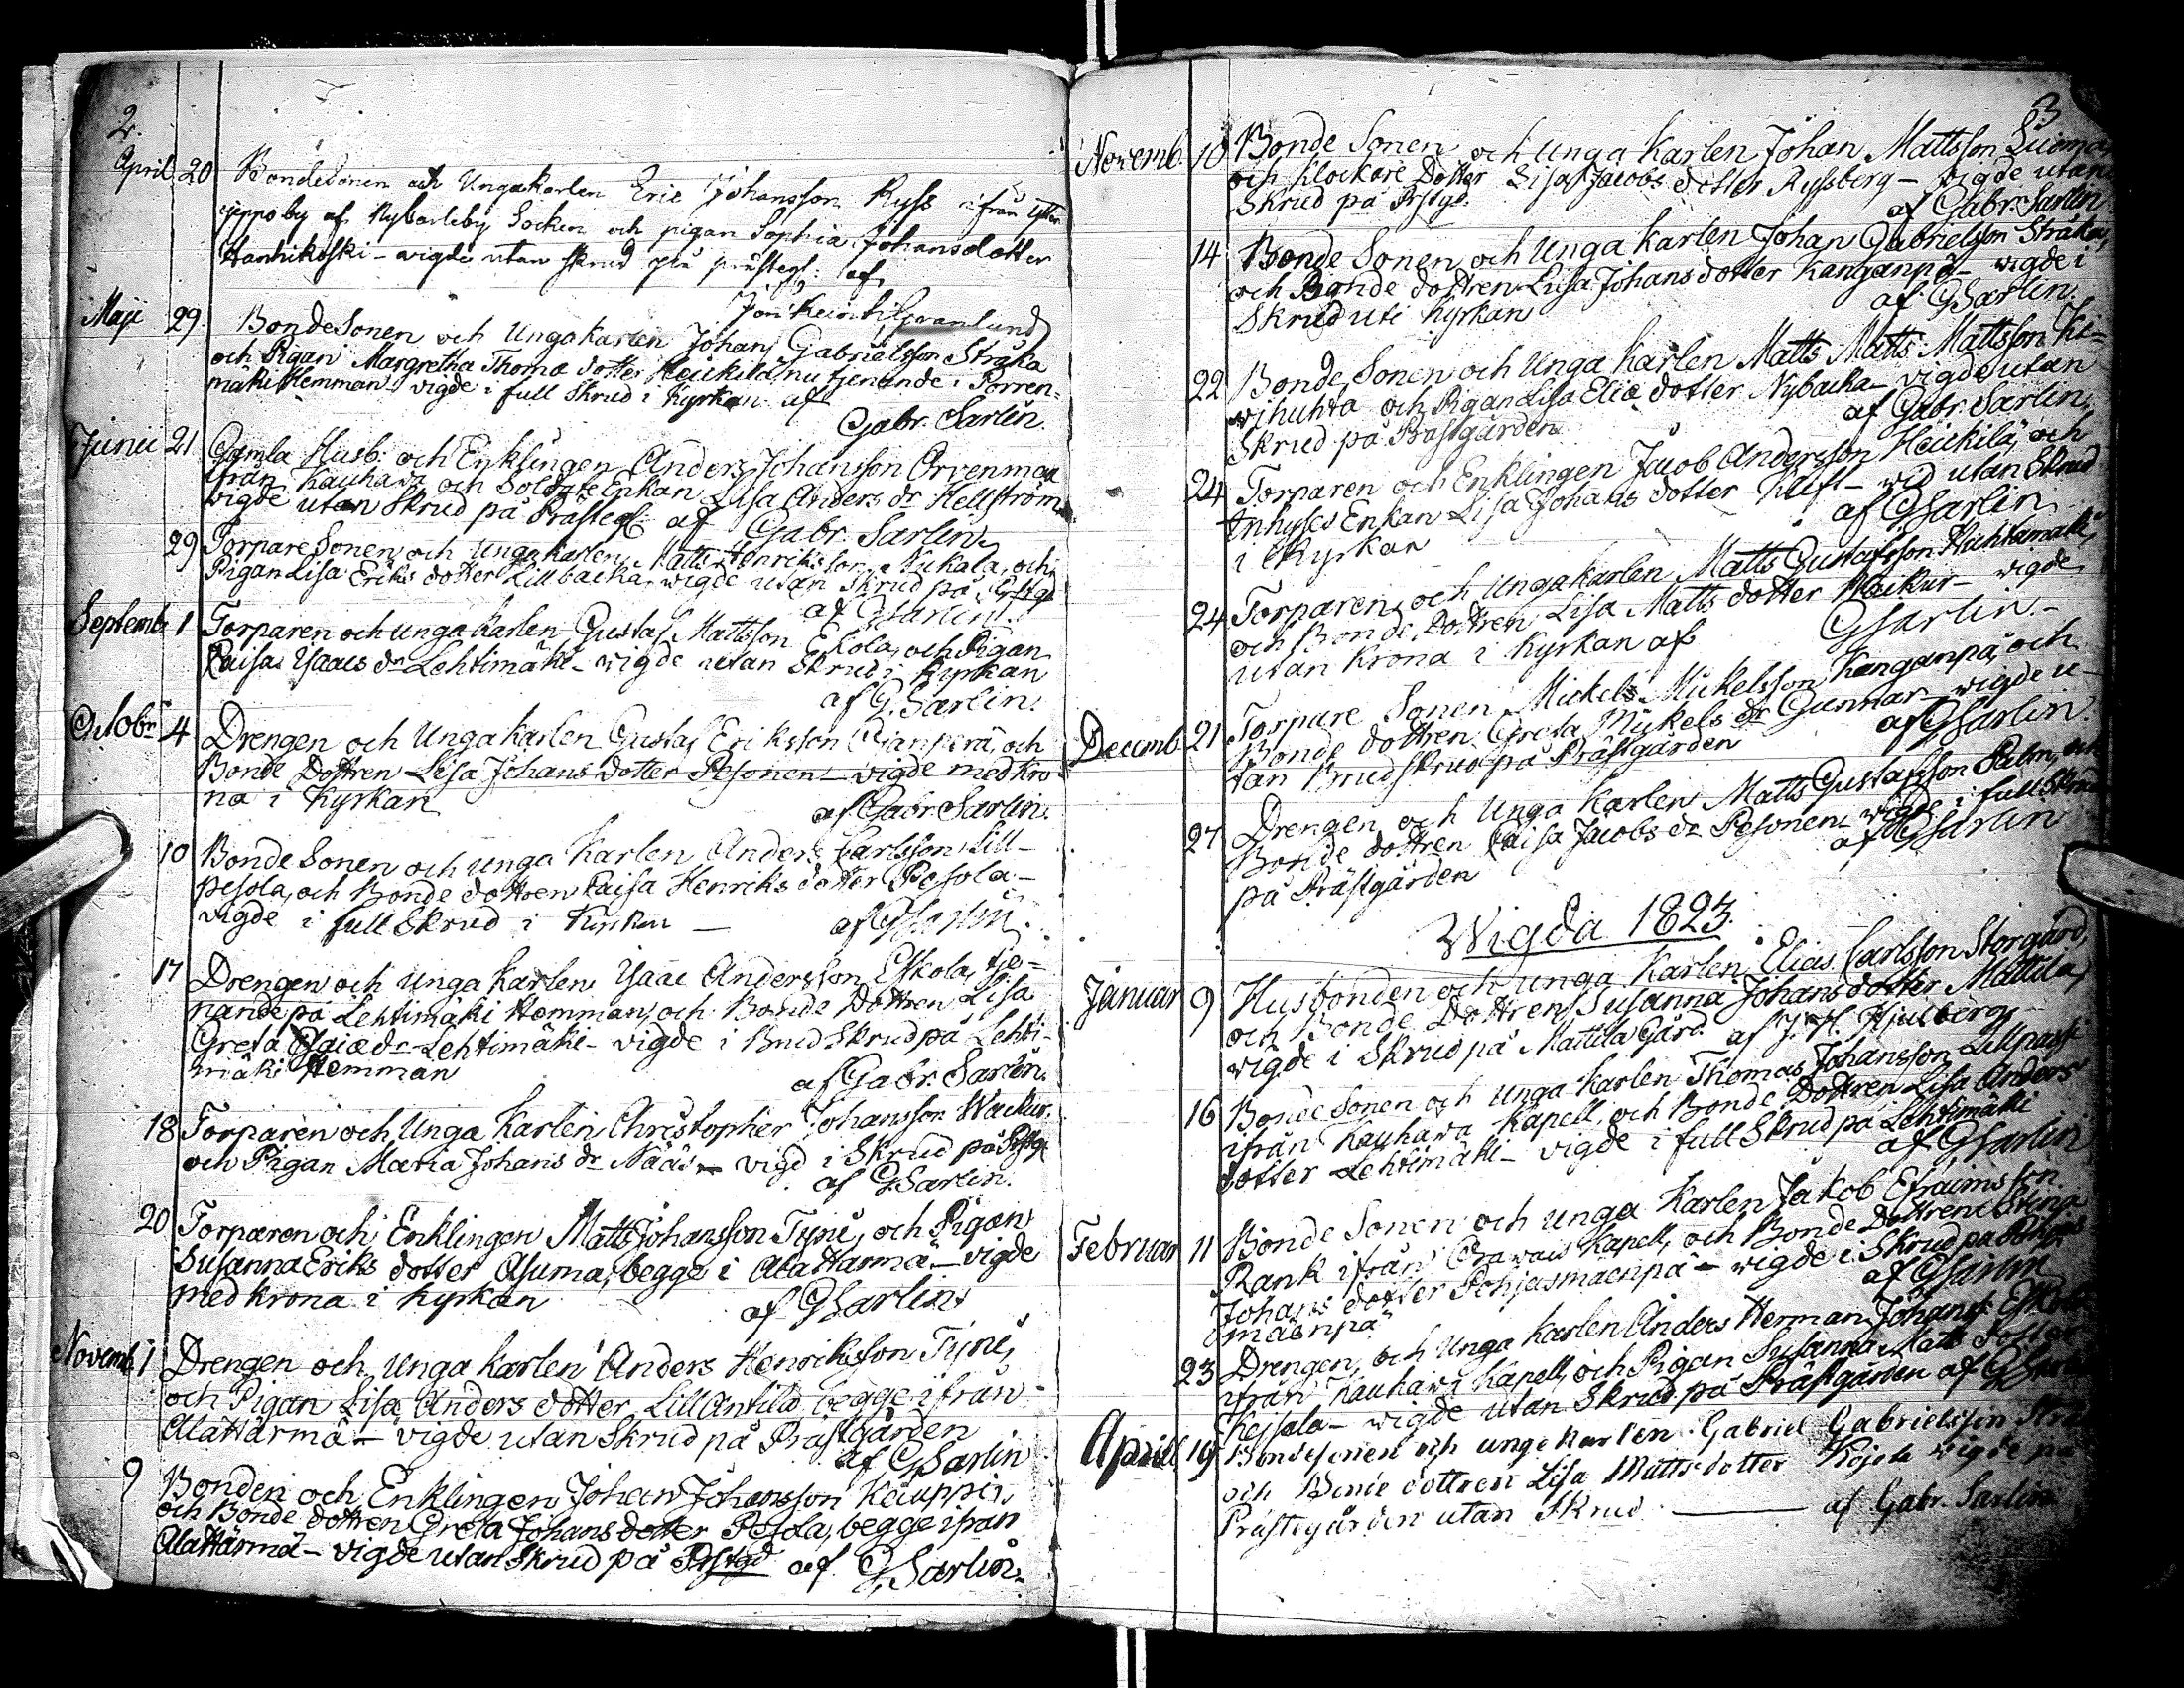 2.
April 20 Bondesonen och Ungakarlen Eric Johansson Ryss ifrån Ytter
jeppo by af Nykarleby Socken och pigan Sophia Johansdotter
Hanhikoski - wigde utan skrud på prästeg: af
Granlund
Maji 29 Bonde Sonen och Unga karlen Johan Gabrielsson Stråka
och Pigan Margretha Thomæ dotter Heickilä nu tjenande i Porren-
mäki Hemman - vigde i full skrud i Kyrkan af
Gabr. Sarlin.
Junii 21 Gamla Husb: och Enklingen Anders Johansson Orvenmaa
ifrån Kauhava och Soldate Enkan Lisa Anders dr Hellström
vigde utan Skrud på Prästeg: af Gabr. Sarlin
29 Torpare Sonen och Unga karlen Matts Henriksson Nukala, och
Pigan Lisa Eriks dotter Lillbacka - wigde utan skrud på Prstgd
af GSarlin.
Septembr 1 Torparen och unga karlen Gustaf Mattsson Ekola, och Pigan
Caisa Ysaacs dr Lehtimäki - wigde utan Skrud i Kyrkan
af G. Sarlin.
Octobr 4 Drengen och Unga karlen Gustaf Eriksson Pianperä, och
Bonde Dottren Lisa Johans dotter Pesonen - vigde med Kro
na i Kyrkan af Gabr. Sarlin.
10 Bonde Sonen och unga Karlen Anders Carlsson Lill-
pesola, och Bonde dottren Caisa Henriks dotter Pesola -
vigde i full Skrud i Kyrkan - af GSarlin.
17 Drengen och Unga Karlen Ysaac Andersson Eskola, tje-
nande på Lehtimäki Hemman, och Bonde Dottren Lisa
Greta Esaiæ dr Lehtimäki - vigde i Brud Skrud på Lehti-
mäki Hemman af Gabr. Sarlin.
18 Torparen och Unga Karlen Christopher Johansson Wackur.
och Pigan Maria Johans dr Nääs - vigd i Skrud på Prstg
af GSarlin.
20 Torparen och Enklingen Matts Johansson Tyni, och Pigan
Susanna Eriks dotter Asuma, begge i Alahärmä - vigde
med krona i Kyrkan af GSarlin.
Novemb. 1 Drengen och Unga karlen Anders Henriksson Tyni,
och Pigan Lisa Anders dotter Lill Antila begge ifrån
Alahärmä - vigde utan Skrud på Prästgården
af GSarlin
9 Bonden och Enklingen Johan Johansson Kauppi,
och Bonde dottren Greta Johans dotter Pesola, begge ifrån
Alahärmä - vigde utan Skrud på Prstgd af GSarlin.
3
Novemb. 10 Bonde Sonen och unga Karlen Johan Mattsson Luoma,
och Klockare Dotter Lisa Jacobs dotter Ryssberg - vigde utan
Skrud på Prstgd. af Gabr: Sarlin
14 Bonde Sonen och Unga Karlen Johan Gabrielsson Stråka,
och Bonde dottren Lisa Johans dotter Kanganpä - vigde i
Skrud uti Kyrkan af GSarlin.
22 Bonde Sonen och Unga Karlen Matts Matts Mattsson Ki-
vihuhta och Pigan Lisa Eliæ dotter Nybacka - vigde utan
Skrud på Prästgården af Gabr. Sarlin.
24 Torparen och Enklingen Jacob Andersson Heickilä, och
Inhyses Enkan Lisa Johans dotter - vid utan Skrud
i Kyrkan af GSarlin
24 Torparen och Unga karlen Matts Gustafsson Huhtamäki,
och Bonde Dottren Lisa Matts dotter Wackur - vigde
utan krona i Kyrkan af GSarlin.-
Decemb. 21 Torpare Sonen Mickels Mickelsson Kanganpä, och
Bonde dottren Greta Mickels dr Gunnar - vigde u-
tan brudskrud på Prästgården af GSarlin.
27 Drengen och Unga Karlen Matts Gustafsson Palm, och
Bonde dottren Caisa Jacobs dr Pesonen - vigde i full Skrud
på Prästgården af GSarlin
Wigda 1823.
Januar 9 Husbonden och unga Karlen Elias Carlsson Storgård,
och Bonde Dottren Susanna Johans dotter Mattila,
vigde i Skrud på Mattila Gård. af J. H. Hjulberg
16 Bonde Sonen och Unga karlen Thomas Johansson Lillpassi
ifrån Kauhava Kapell, och Bonde Dottren Lisa Anders
dotter Lehtimäki - vigde i full Skrud på Lehtimäki
af GSarlin
Februar 11 Bonde Sonen och Unga Karlen Jakob Efraimsson
Rank ifrån Orawais Kapell, och Bonde Dottren Stina
Johans dotter Pohjasmaenpä - wigde i Skrud på Pohjas
maenpä af GSarlin
23 Drengen, och Unga karlen Anders Herman Johanss: Eskola
ifrån Kauhava Kapell, och Pigan Susanna Matts dotter
Kejsala - wigde utan Skrud på Prästgården af GSarlin
Aprill 19 Bondesonen och unge karlen Gabriel Gabrielsson
och Bonde dottren Lisa Matts dotter Kojola vigde på
Prästegården utan Skrud - af Gabr. Sarlin